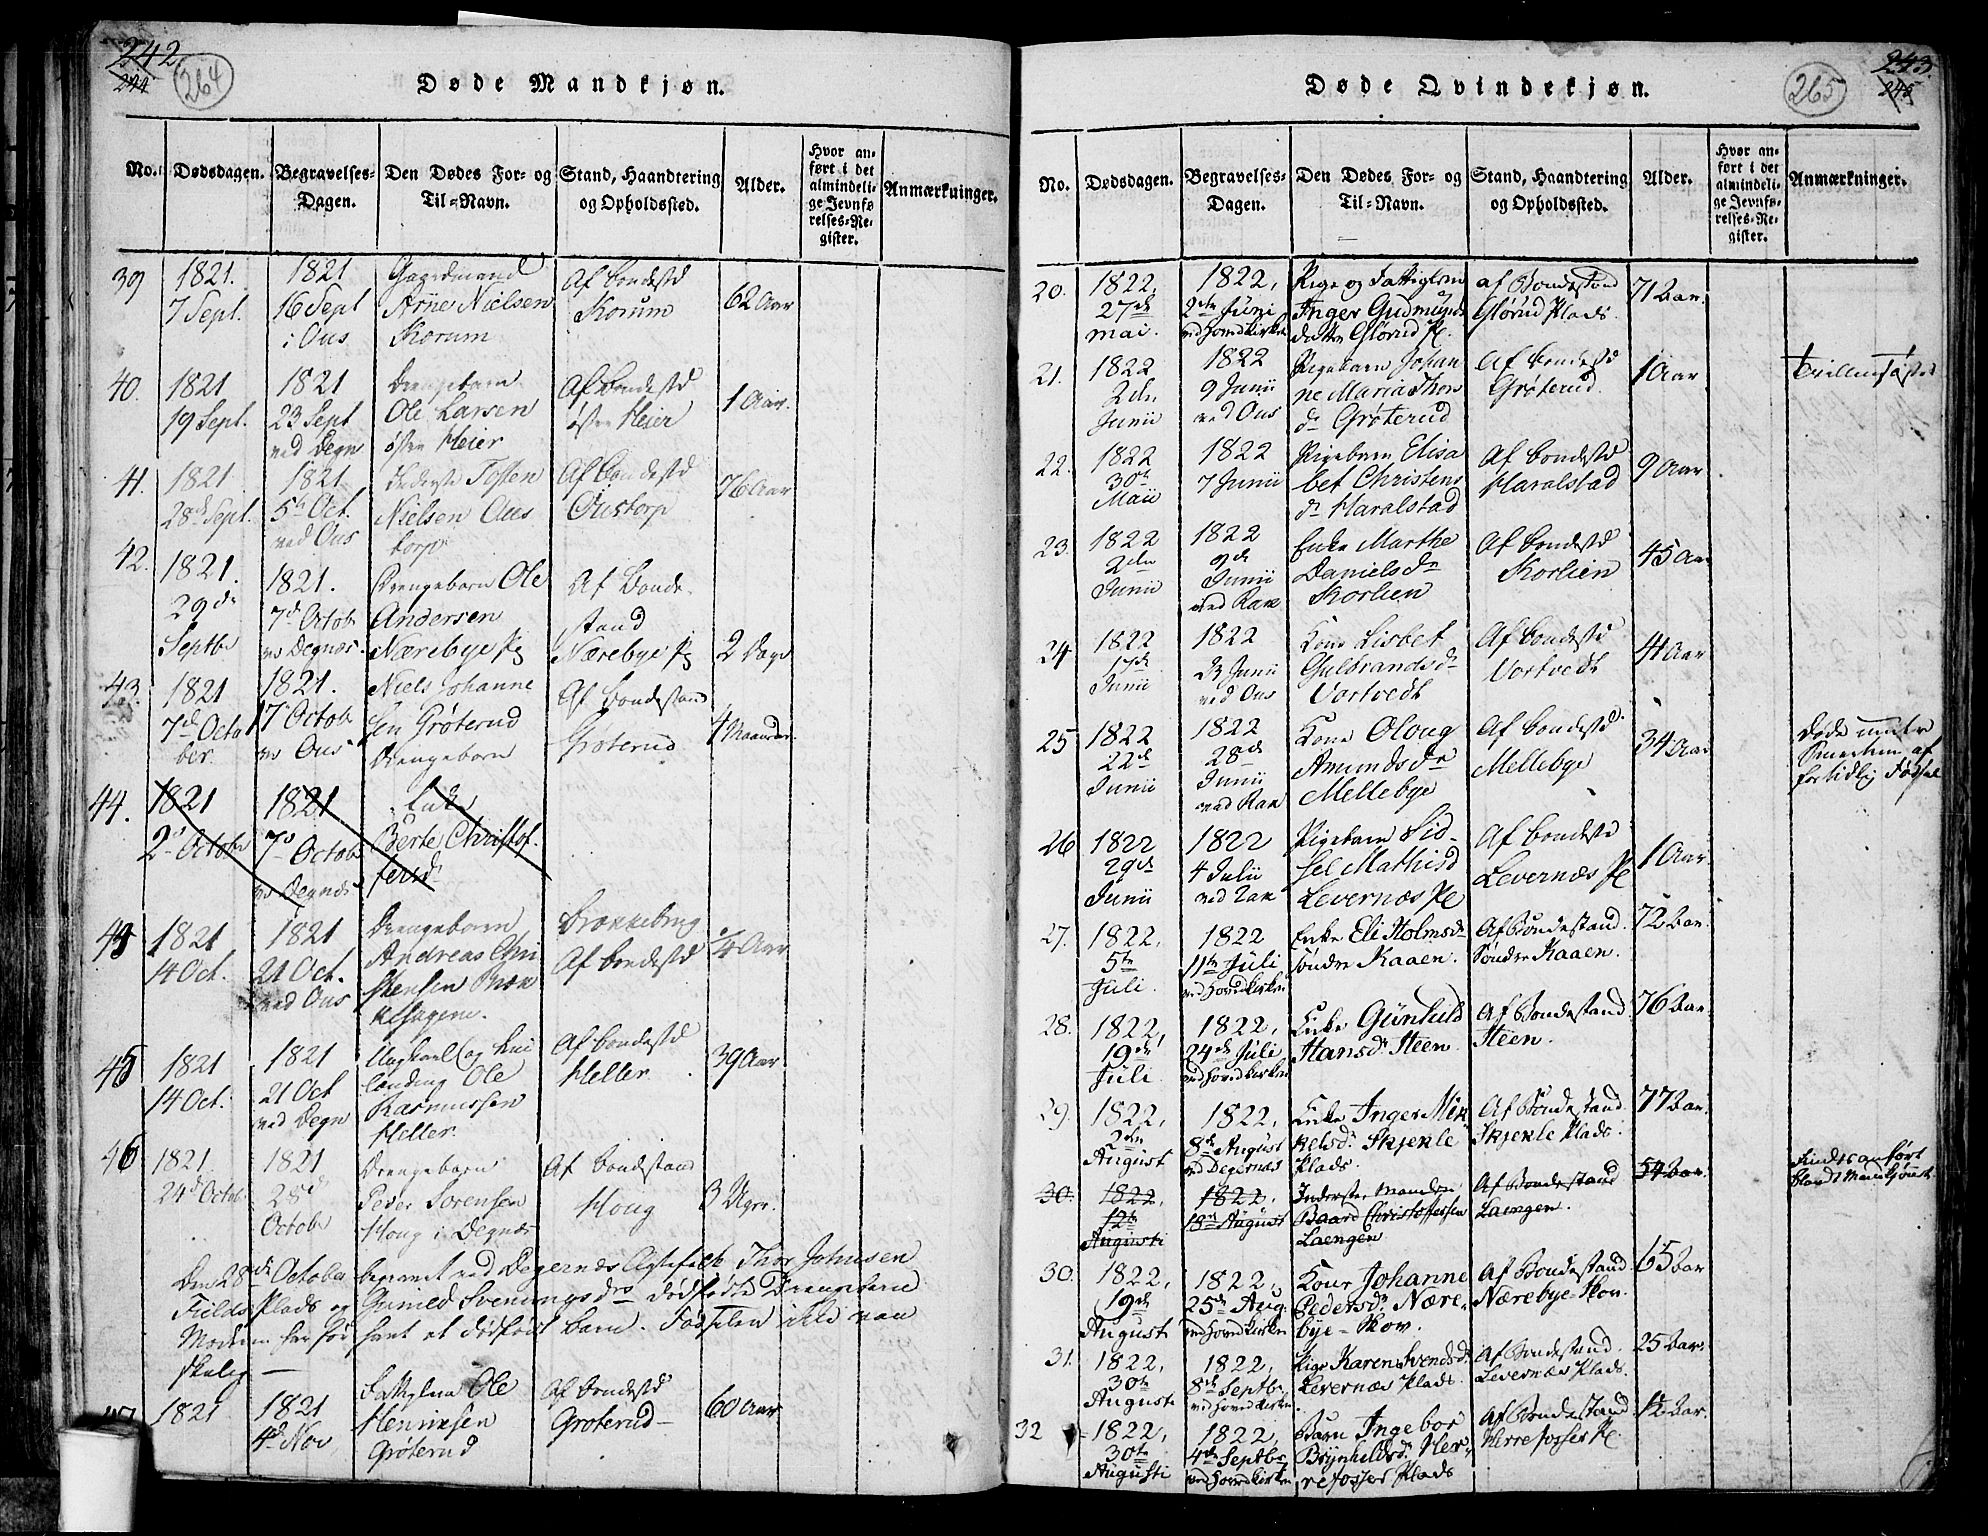 242
244
264
Døde Mandkjøn.
No.
Dødsdagen.
Begravelses-
Dagen.
Den Dødes For- og
Til-Navn.
Stand, Haandtering
og Opholdssted.
Alder.
Hvor an-
ført i det
almindeli-
ge Jevnfø-
relses-Re-
gister.
Anmærkninger.
39
1821.
7 Sept.
1821
16 Sept
i Ous
Gaardmand
Arne Nielsen
Korum
Af bondestd
Korum
62 Aar
40.
1821
19 Sept.
1821
23 Sept
ved Degn
Drengebarn
Ole Larsen
østre Heier
Af bondestd
østre Heier
1 Aar.
41.
1821
28d Sept.
1821
5te Oct.
ved Ous
Inderste Tosten
Nielsen Ous
torp
Af bondestd
Oustorp
76 Aar
42.
1821.
29de
Septbr
1821.
7d Octob
vd Degnæs
Drengebarn Ole
Andersen
Nærebye Pl
Af bonde-
stand
Nærebye Pl
2 Dage
43.
1821
7de Octo
ber.
1821.
17 Octob
vd Ous
Niels Johanne
sen Grøterud
Drengebarn
Af bondestand
Grøterud
4 Maaneder
44.
1821
2d Octobr
1821
7d Octob
vd Degnæs
Enke
Berte Christof-
fersd
45
1821
14 Oct.
1821
21 Oct.
ved Ous
Drengebarn
Andreas Chri
stensen Bræk
Af bondestd
1/4 Aar
45
1821
14 Oct.
1821
21 Oct
ved Degn
Ole
Rasmussen
Heller.
Af bondestd
Heller
39 Aar
46
1821
24d Octob
1821
28d
Octobr
Drengebarn
Peder Sorensen
Houg i Degnæs
Af bondestand
Houg
3 Uger.
Den 28de October begravet ved Degernæs Thor Johnsen
Filds Plads og Gunild Svenningsdrs dødfødte Drengebarn
Moderen har før havt et dødfødt barn. Fødselen ikke van
skelig
47
1821
1821
4d Nov
Fattiglem Ole
Henriksen
Grøterud
Af bondestd
Grøterud
60 Aar
243
245
265
Døde Qvindekjøn.
No.
Dødsdagen.
Begravelses-
Dagen.
Den Dødes For- og
Til-Navn.
Stand, Haandtering
og Opholdssted.
Alder.
Hvor an-
ført i det
almindeli-
ge Jevnfø-
relses-Re-
gister.
Anmærkninger.
20.
1822,
27de
mai.
1822,
2den Juni
ved Hovedkirken
Pige og Fattiglem
Inger Gudmunds
datter Glørud Pl.
af Bondestand
Glørud Plads.
71 Aar.
21.
1822
2den
Junii
1822
9 Junii
ved Ous
Pigebarn Johan
ne Maria Thor
dr Grøterud
Af bondestd
Grøterud.
1 Aar
22.
1822
30te
Maii
1822
7 Junii
Pigebarn Elisa
bet Christens
dr Haralstad
Af bondestd
Haralstad
9 Aar
23.
1822
2den
Junii
1822
9de
Junii
ved Rak
Enke Marthe
Daniels dr
Korlien
Af bondestd
Korlien
45 Aar
24
1822
17de
Junii
1822
23 Junii
ved Ous
Kone Lisbet
Gulbrandsdr
Vortvedt
Af bondestd
Vortvedt
41 Aar
25
1822
22de
Junii
1822
28de
Junii
ved Rak
Kone Oloug
Amundsdr
Mellebye
Af bondestd
Mellebye
34 Aar
Døde under
af
fortidlig Fødsel
26
1822
29de
Junii
1822
4 Julii
ved Rak
Pigebarn Sid-
sel Mathisd
Levernæs Pl
Af bondestd
Levernæs Pl
1 Aar.
27.
1822,
5te
Juli.
1822
11te Juli
ved Hovedkirken
Enke Eli Holmsdr
søndre Kaaen.
Af Bondestand.
Søndre Kaaen.
72 Aar.
28.
1822,
19de
Juli
1822,
24de Juli
ved Hovedkirken
Enke Günhild
Hansdr Steen
Af Bondestand
Steen.
76 Aar.
29.
1822,
2den
August
1822,
8de August
ved Degernæs
Enke Inger Mik
kelsdr Skjekle
Plads.
Af Bondestand
Skjekle Plads.
77 Aar.
30.
1822,
12te
Augusti
1822,
18de August
Inderster Manden
Baard Christoffersen
Laengen
Af Bondestand
Laengen.
54 Aar.
Findes anført
blandt Mandkjønnet.
30.
1822,
19de
Augusti
1822,
25de Aug:
ved Hovedkirken
Kone Johanne
Pedersdr Nære-
bye-Skov.
Af Bondestand
Nærebye-Skov.
65 Aar
31.
1822,
30te
Augusti
1822,
8de Septbr
ved Hovedkirken
Pige Karen Svendsdr
Levernæs Plads.
Af Bondestand.
Levernæs Plads.
25 Aar.
32
1822,
30te
Augusti
1822,
4de Septbr
ved Hovedkirken
Barn Ingebor
Brynhildsdr Her-
refosser Plads
Af Bondestand
Herrefosser Pl.